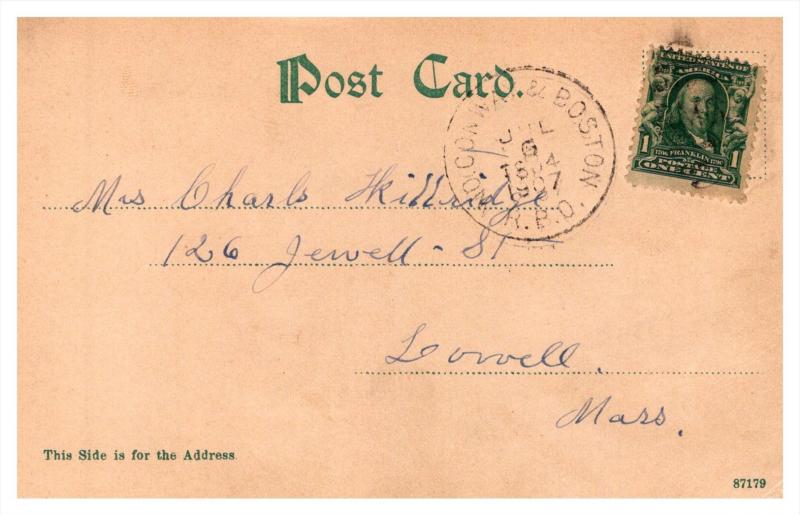 Post Card.
CONWAY & BOSTON
JUL
24
1907
R.P.O.
UNITED STATES OF
AMERICA
1706 FRANKLIN 1790
1 POSTAGE 1
ONE CENT
Mrs Charls Kittridge
126 Jewell - St
Lowell.
Mass.
This Side is for the Address
87179